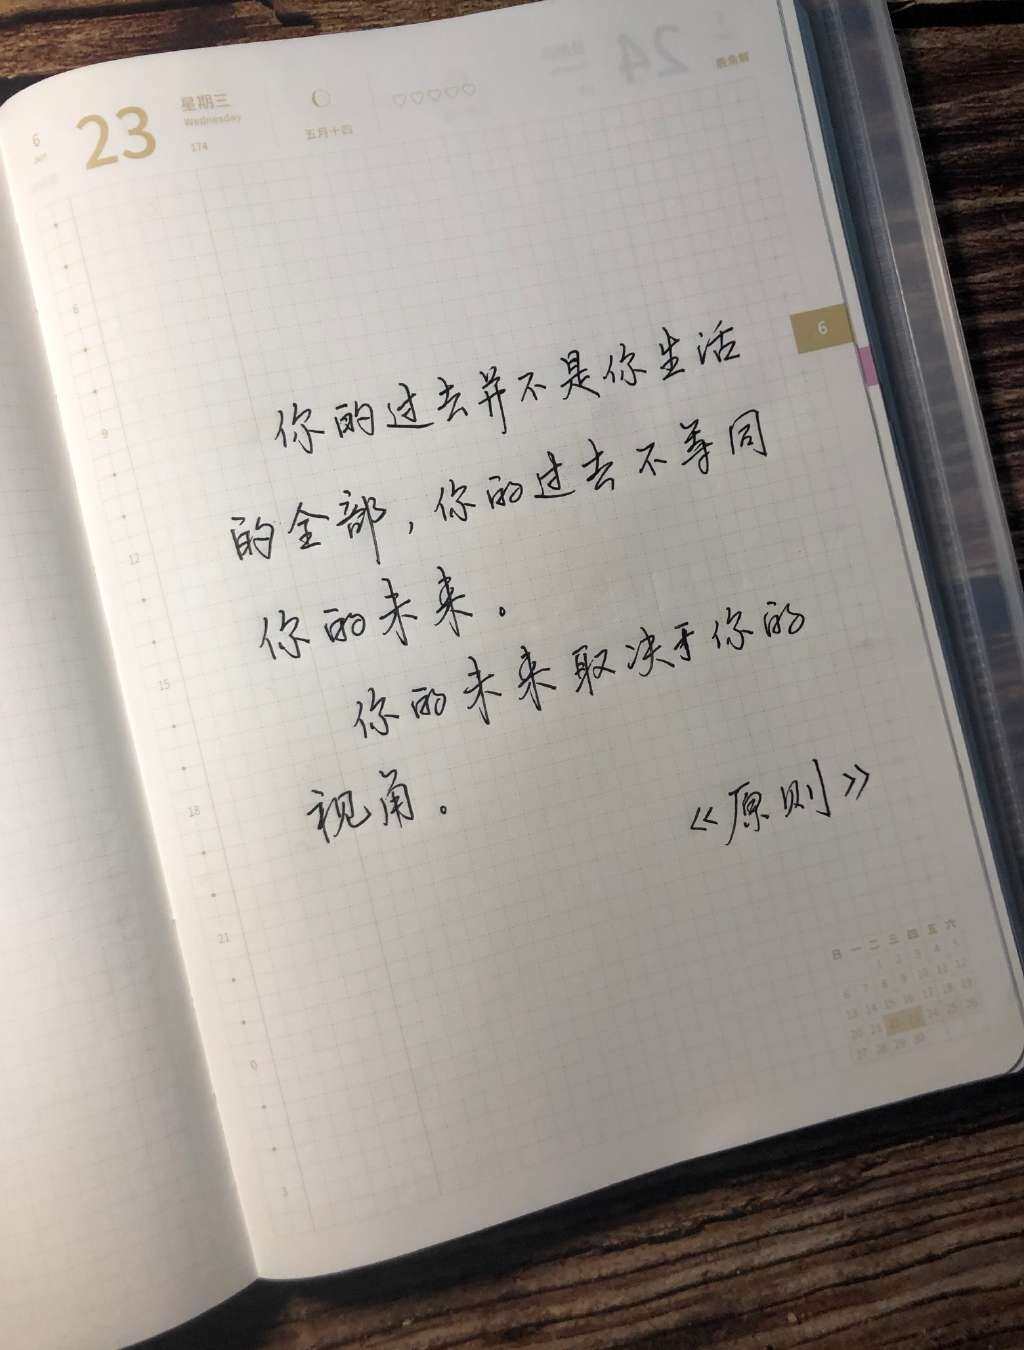 6
23
星期三
Wednesday
174
五月十四
♡♡♡♡♡
24
6
你的过去并不是你生活
的全部，你的过去不等同
你的未来。
你的未来取决于你的
视角。
《原则》
6
9
12
15
18
21
0
3
日 一 二 三 四 五 六
1 2 3 4 5
6 7 8 9 10 11 12
13 14 15 16 17 18 19
20 21 22 23 24 25 26
27 28 29 30